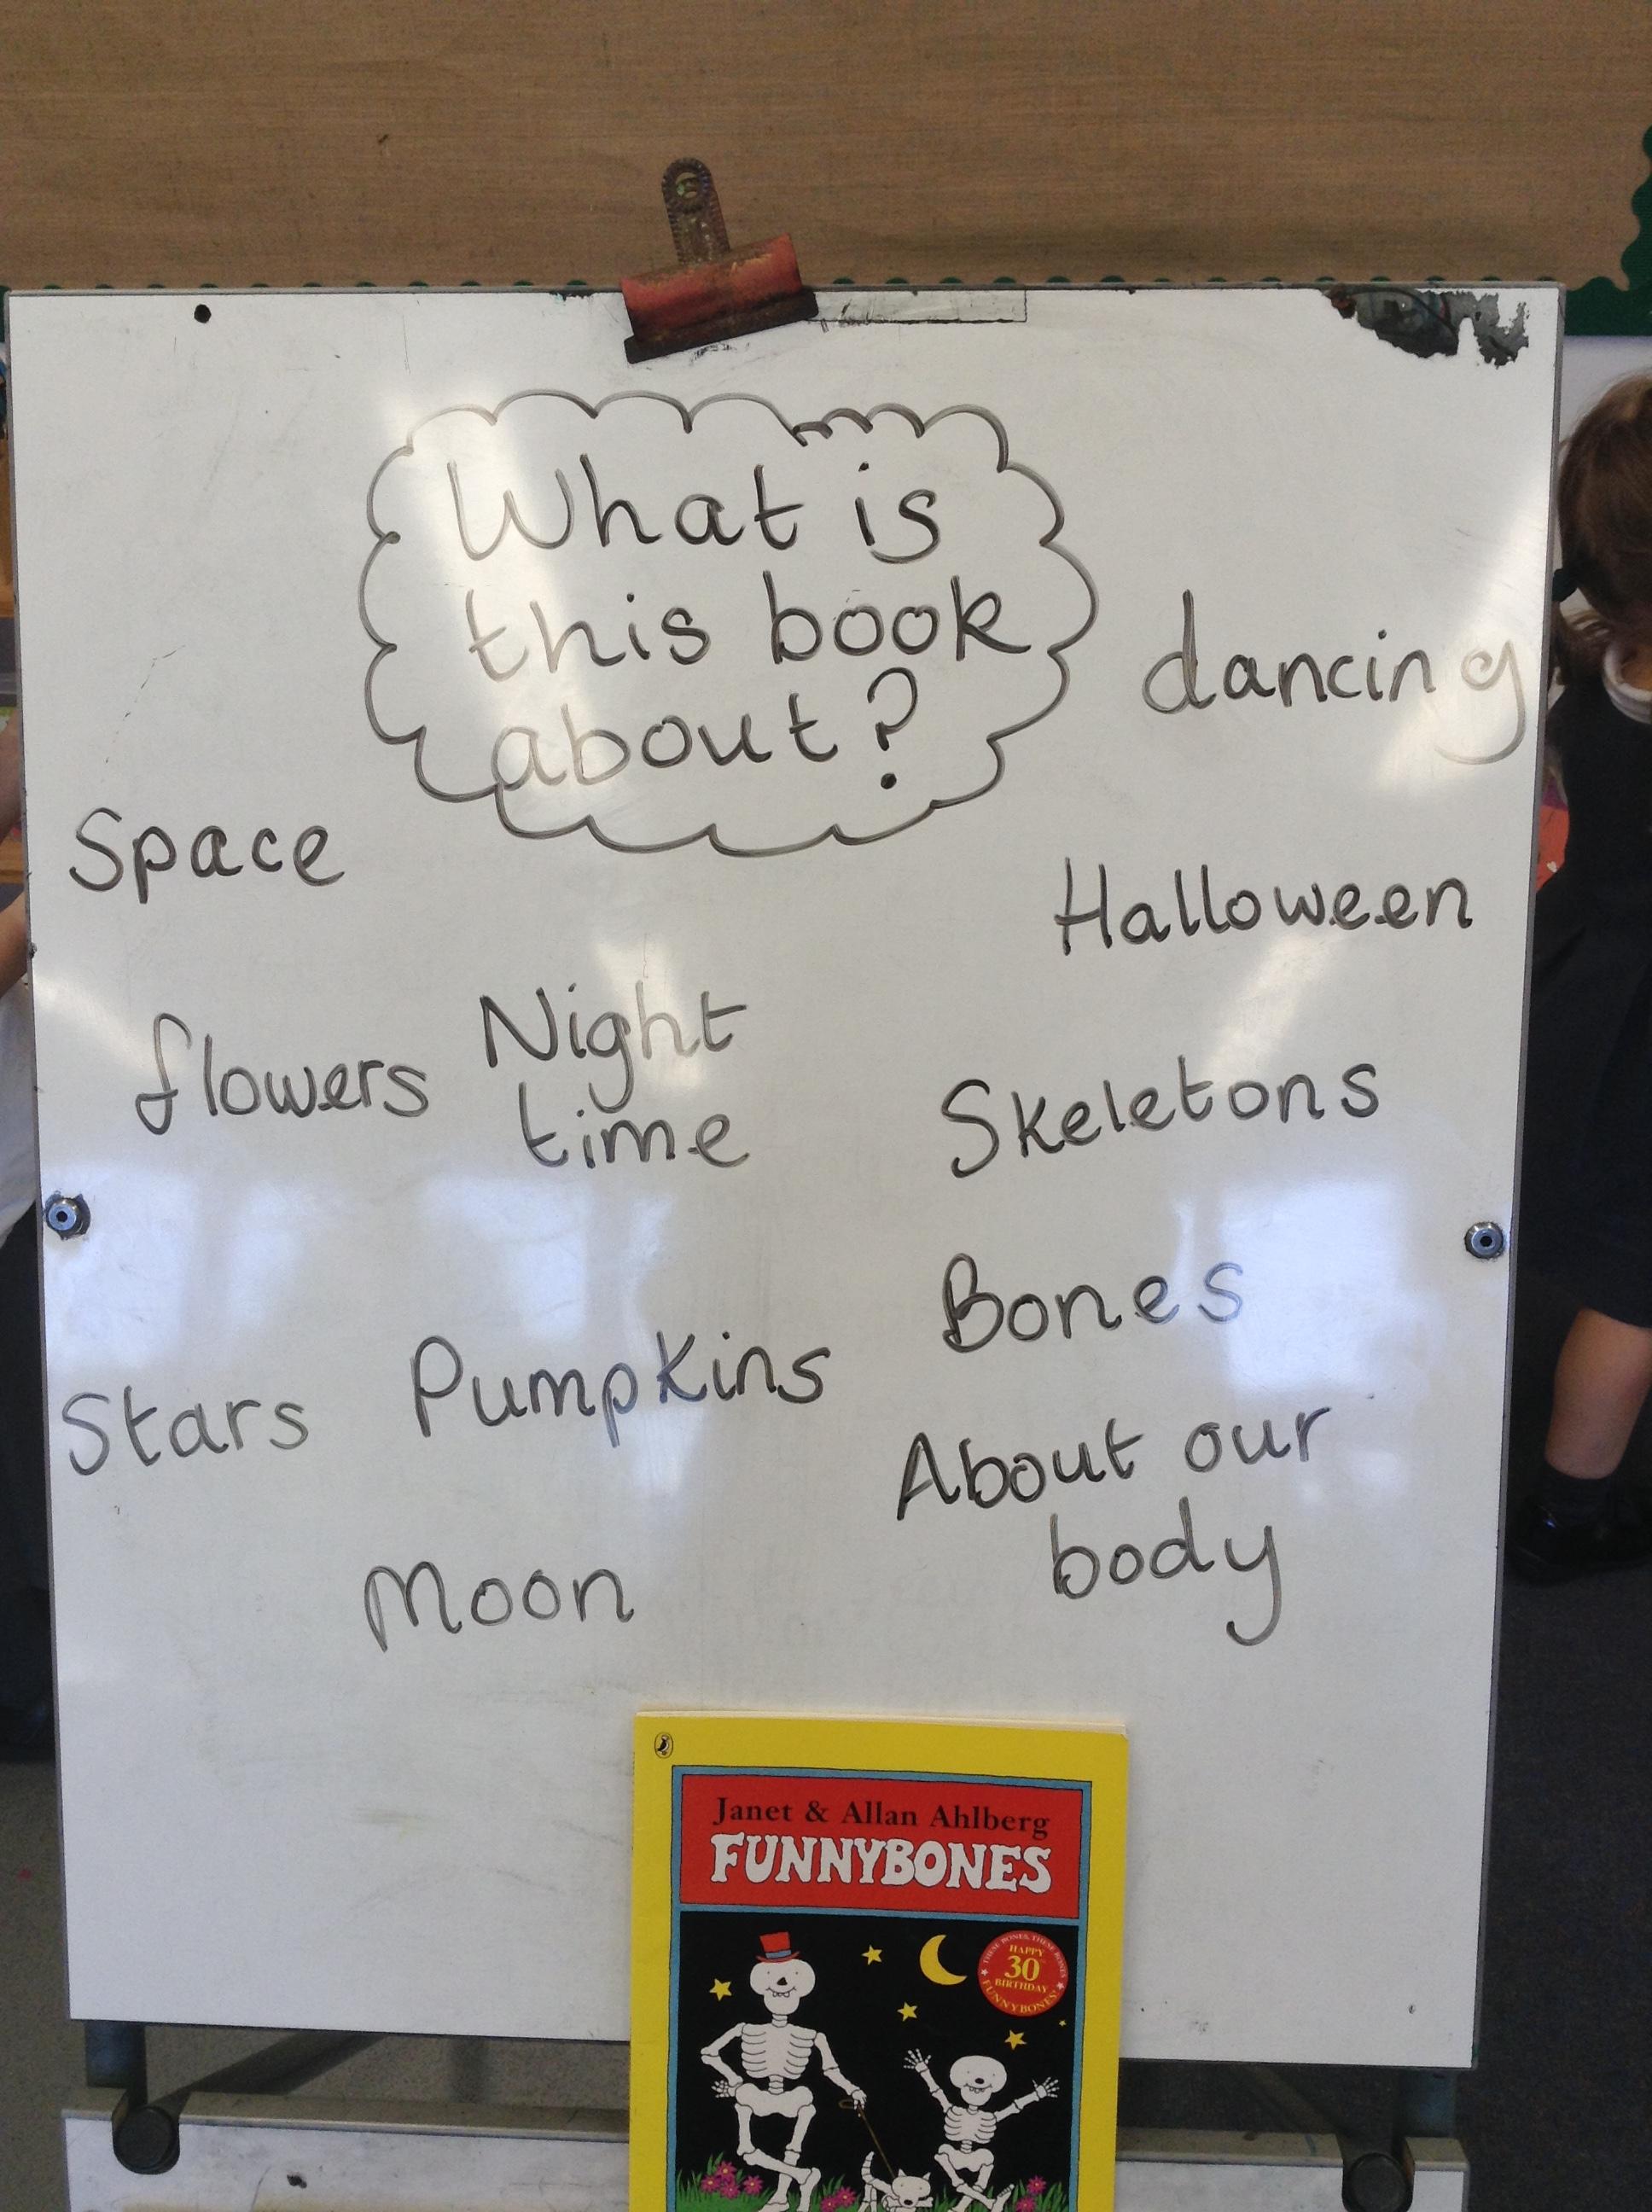 What is
this book
about?
dancing
Space
Halloween
flowers
Night
time
Skeletons
Bones
Stars
Pumpkins
About our
body
Moon
Janet & Allan Ahlberg
FUNNYBONES
THESE BONES, THESE BONES
HAPPY
30th
BIRTHDAY
FUNNYBONES!